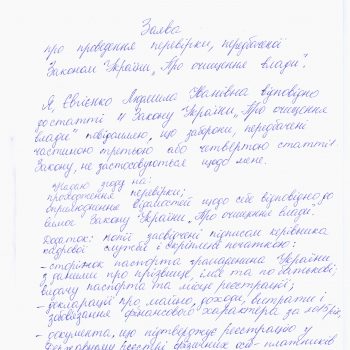 Заява
про проведення перевірки, передбаченої
Законом України „Про очищення влади".
Я, Євгієнко Людмила Іванівна відповідно
до статті 4 Закону України „Про очищення
влади" повідомляю, що заборони, передбачені
частиною третьою або четвертою статті 1
Закону, не застосовуються щодо мене.
Надаю згоду на:
проходження перевірки;
оприлюднення відомостей щодо себе відповідно до
вимог Закону України „Про очищення влади".
Додаток: копії засвідчені підписом керівника
кадрової служби і скріплені печаткою:
– сторінок паспорта громадянина України
з даними про прізвище, ім'я та по батькові,
видачу паспорта та місце реєстрації;
– декларації про майно, доходи, витрати і
зобов'язання фінансового характера за рік;
– документа, що підтверджує реєстрацію у
Державному реєстрі фізичних осіб-платників